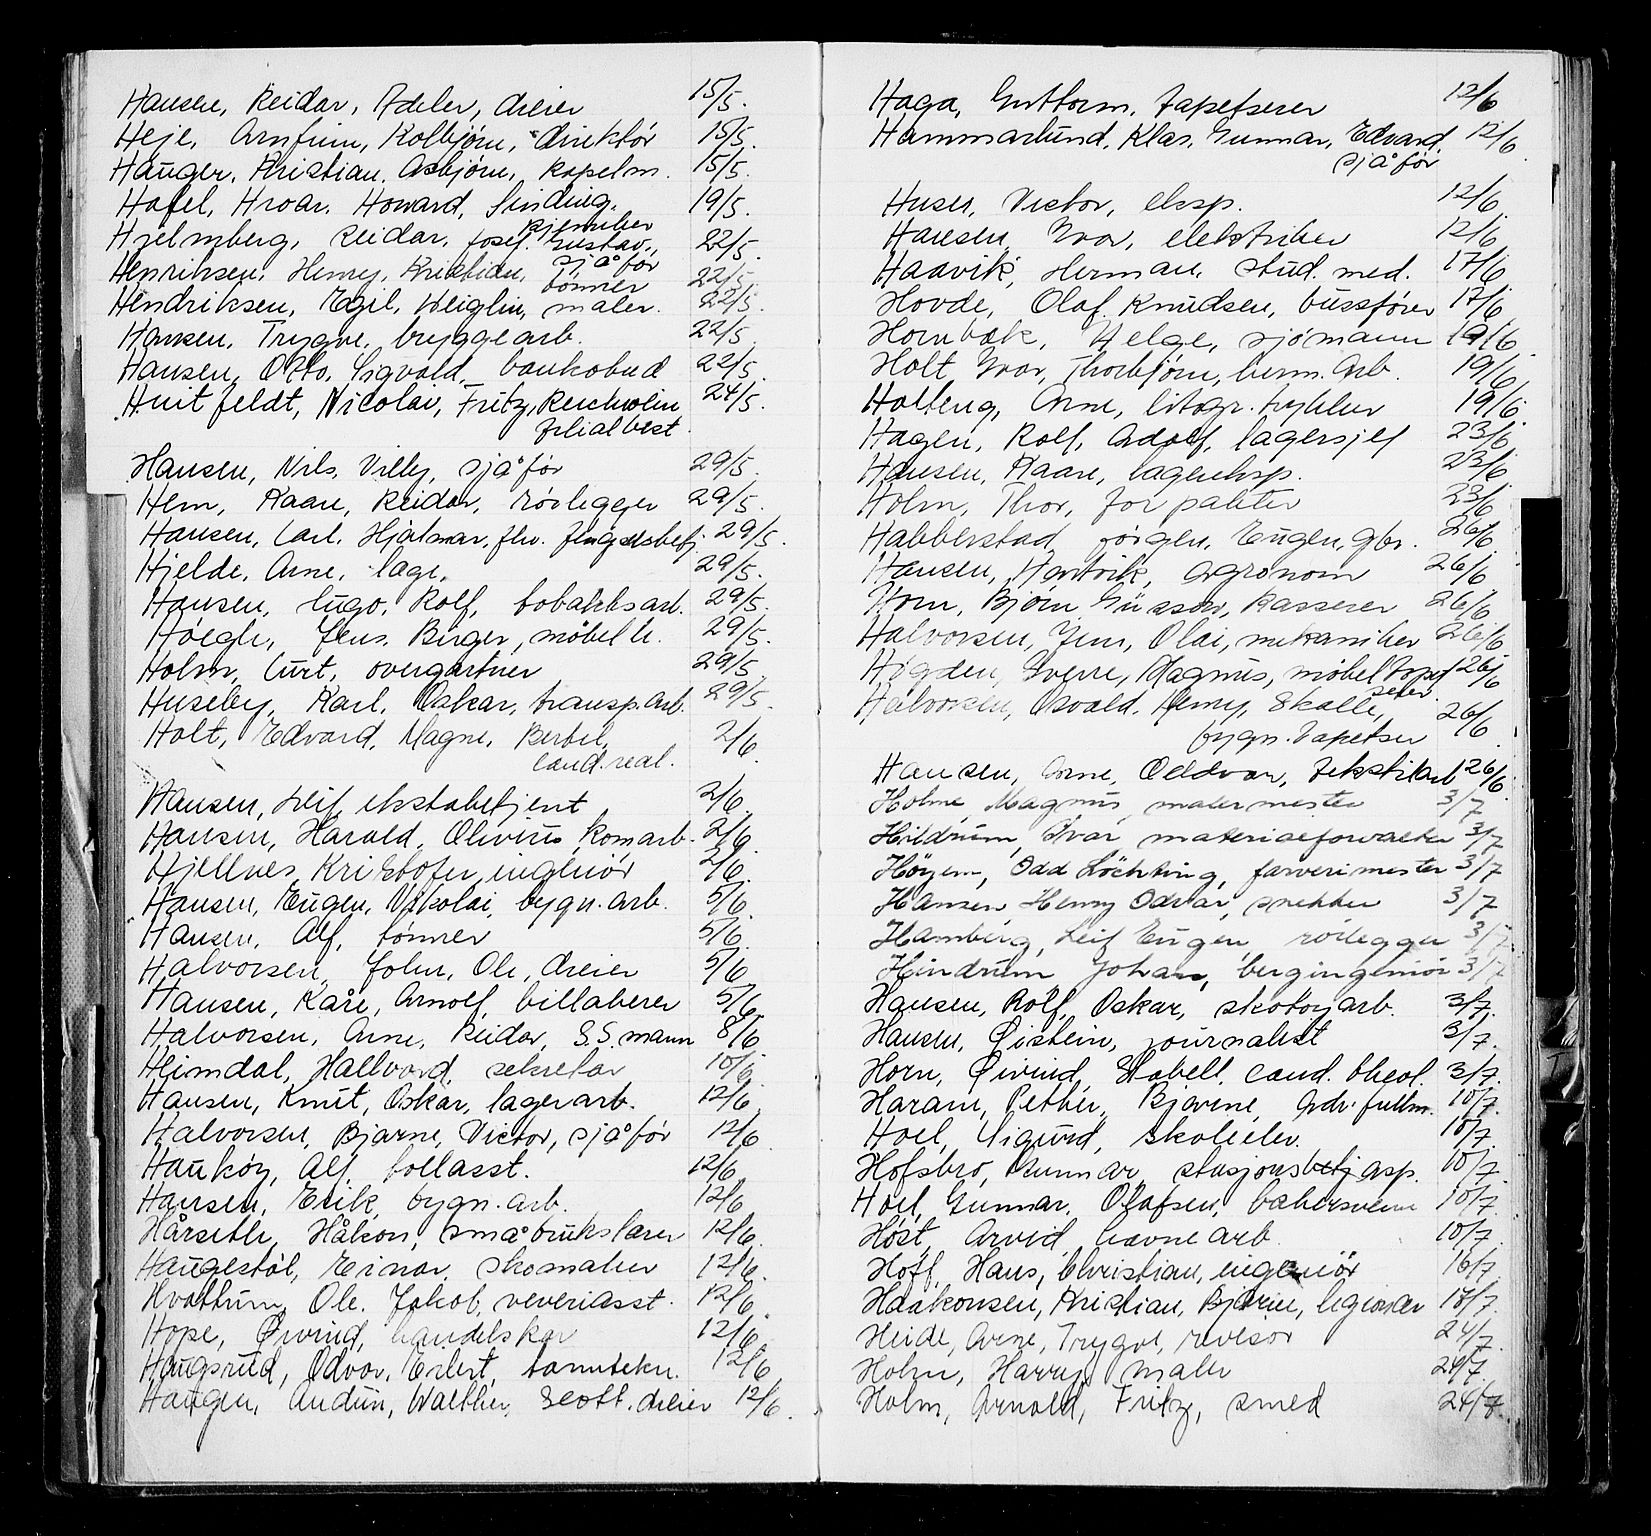 Hansen, Reidar, Adeler, dreier 15/5.
Heje, Arnfinn, Kolbjørn, direktør 15/5.
Hauger, Kristian, Asbjørn, kapelm. 15/5.
Hafel, Hroar, Howard, Sinding, 19/5.
kjemiker
Hjelmberg, Reidar, Josef, Gustav, 22/5.
sjåfør
Henriksen, Henry, Kristian, 22/5.
tømrer
Hendriksen, Egil, Weiglin, maler. 22/5.
Hansen, Trygve, bryggearb. 22/5
Hansen, Otto, Sigvald, bankobud 22/5.
Huitfeldt, Nicolav, Fritz, Reichwein 24/5.
filialbest.
Hansen, Nils, Villy, sjåfør 29/5.
Hem, Kaare, Reidar, rørlegger 29/5.
Hansen, Carl, Hjalmar, fhv. fengselsbetj. 29/5.
Hjelde, Arne, lage. 29/5.
Hansen, Hugo, Rolf, tobakksarb. 29/5.
Høegh, Jens, Birger, møbel h. 29/5.
Holm, Curt, overgartner 29/5
Huseby, Karl, Oskar, transp.arb. 29/5.
Holt, Edvard, Magne, Berbel, 2/6.
cand. real.
Hansen, Leif, ekstabetjent 2/6.
Hansen, Harald, Olivius, komarb. 2/6.
Hjellnes, Kristofer, ingeniør 2/6.
Hansen, Eugen, Nikolai, bygn. arb. 5/6.
Hansen, Alf, tømrer 5/6.
Halvorsen, John, Ole, dreier 5/6
Hansen, Kåre, Arnolf, billaberer 5/6.
Halvorsen, Arne, Reidar, S.S. mann 8/6
Heimdal, Hallvard, sekretær 10/6
Hansen, Knut, Oskar, lagerarb. 12/6
Halvorsen, Bjarne, Victor, sjåfør 12/6
Haukøy, Alf, tollasst. 12/6
Hansen, Erik, bygn. arb. 12/6
Hårseth, Håkon, småbrukslærer 12/6.
Haugestøl, Einar, skomaker 12/6.
Hvattum, Ole, Jakob, veveriasst. 12/6.
Hope, Øivind, handelskar 12/6.
Haugsrud, Odvar, Erlert, tanntekn. 12/6
Haugen, Audun, Walther, Scott, dreier 12/6.
Haga, Guttorm, tapetserer 12/6
Hammarlund, Klas, Gunnar, Edvard, 12/6.
sjåfør
Huser, Victor, eksp. 12/6
Hansen, Ivar, elektriker 12/6
Haavik, Herman, stud. med. 17/6
Hovde, Olaf Knudsen, bussfører 17/6
Hornbæk, Helge, sjømann 19/6
Holt, Ivar, Thorbjørn, herm. arb. 19/6
Holteng, Arne, litogr. trykker 19/6
Hagen, Rolf, Adolf, lagersjef 23/6
Hansen, Kaare, lagereksp. 23/6
Holm, Thor, forpakter 23/6
Habberstad, Jørgen, Eugen, gbr. 26/6.
Hansen, Hartvik, agronom 26/6
Horn, Bjørn, Gussov, kasserer 26/6
Halvorsen, Jens, Olai, mekaniker 26/6
Høgden, Sverre, Magnus, møbeltapet 26/6
serer
Halvorsen, Osvald, Henry, Skalle, 26/6.
bygn. tapetser
Hansen, Arne, Oddvar, tekstilarb 26/6.
Holme, Magnus, malermester 3/7
Hildrum, Ivar, materialforvalter 3/7
Höyem, Odd Löchting, farverimester 3/7
Hansen, Henry Odvar, snekker 3/7
Hamberg, Leif Eugen, rørlegger 3/7
Hindrum, Johan, bergingeniør 3/7
Hansen, Rolf, Oskar, skotøyarb. 3/7.
Hansen, Øistein, journalist 3/7.
Horn, Øivind, Stabell, cand. theol. 3/7.
Haram, Petter, Bjarne, Adv. fullm. 10/7.
Hoel, Sigurd, skoleelev. 10/7.
Hofsbro, Gunnar, stasjonsbetj. asp. 10/7.
Hoel, Gunnar, Olafsen, bakersvenn 10/7.
Høst, Arvid, havnearb. 10/7.
Hoff, Hans, Christian, ingeniør 16/7.
Haakonsen, Kristian, Bjarne, legionær 17/7.
Heide, Arne, Trygve, revisor 24/7.
Holm, Harry, maler 24/7.
Holm, Arnold, Fritz, smed 24/7.